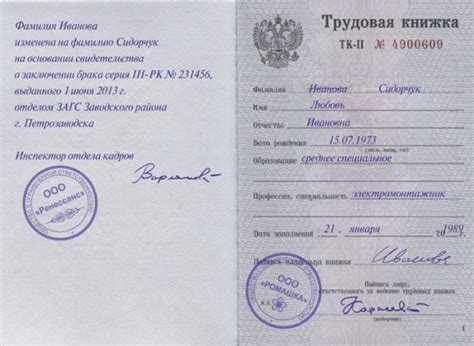 Фамилия Иванова
изменена на фамилию Сидорчук
на основании свидетельства
о заключении брака серия III-РК № 231456,
выданного 1 июня 2013 г.
отделом ЗАГС Заводского района
г. Петрозаводска
Инспектор отдела кадров
ООО
«Ренессанс»
Трудовая книжка
ТК-II № 4900609
Фамилия Иванова Сидорчук
Имя Любовь
Отчество Ивановна
Дата рождения 15.07.1973
(число, месяц, год)
Образование среднее специальное
Профессия, специальность электромонтажник
Дата заполнения 21. января 1989
Подпись владельца книжки
Подпись лица,
ответственного за ведение трудовых книжек
ООО
«РОМАШКА»
М.П.
(разборчиво)
1